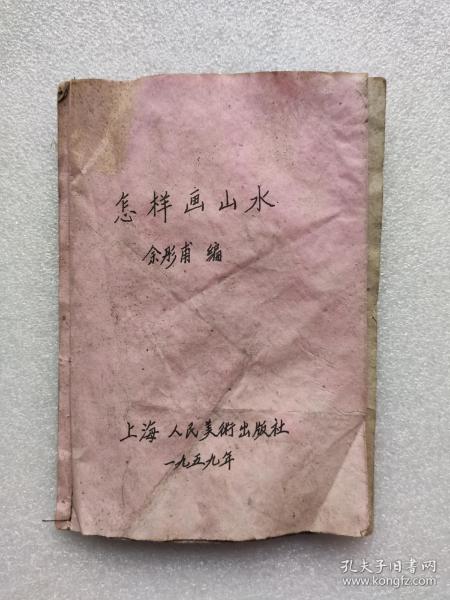 怎样画山水
余彤甫 编
上海 人民美術出版社
一九五九年
孔夫子旧书网
www.kongfz.com